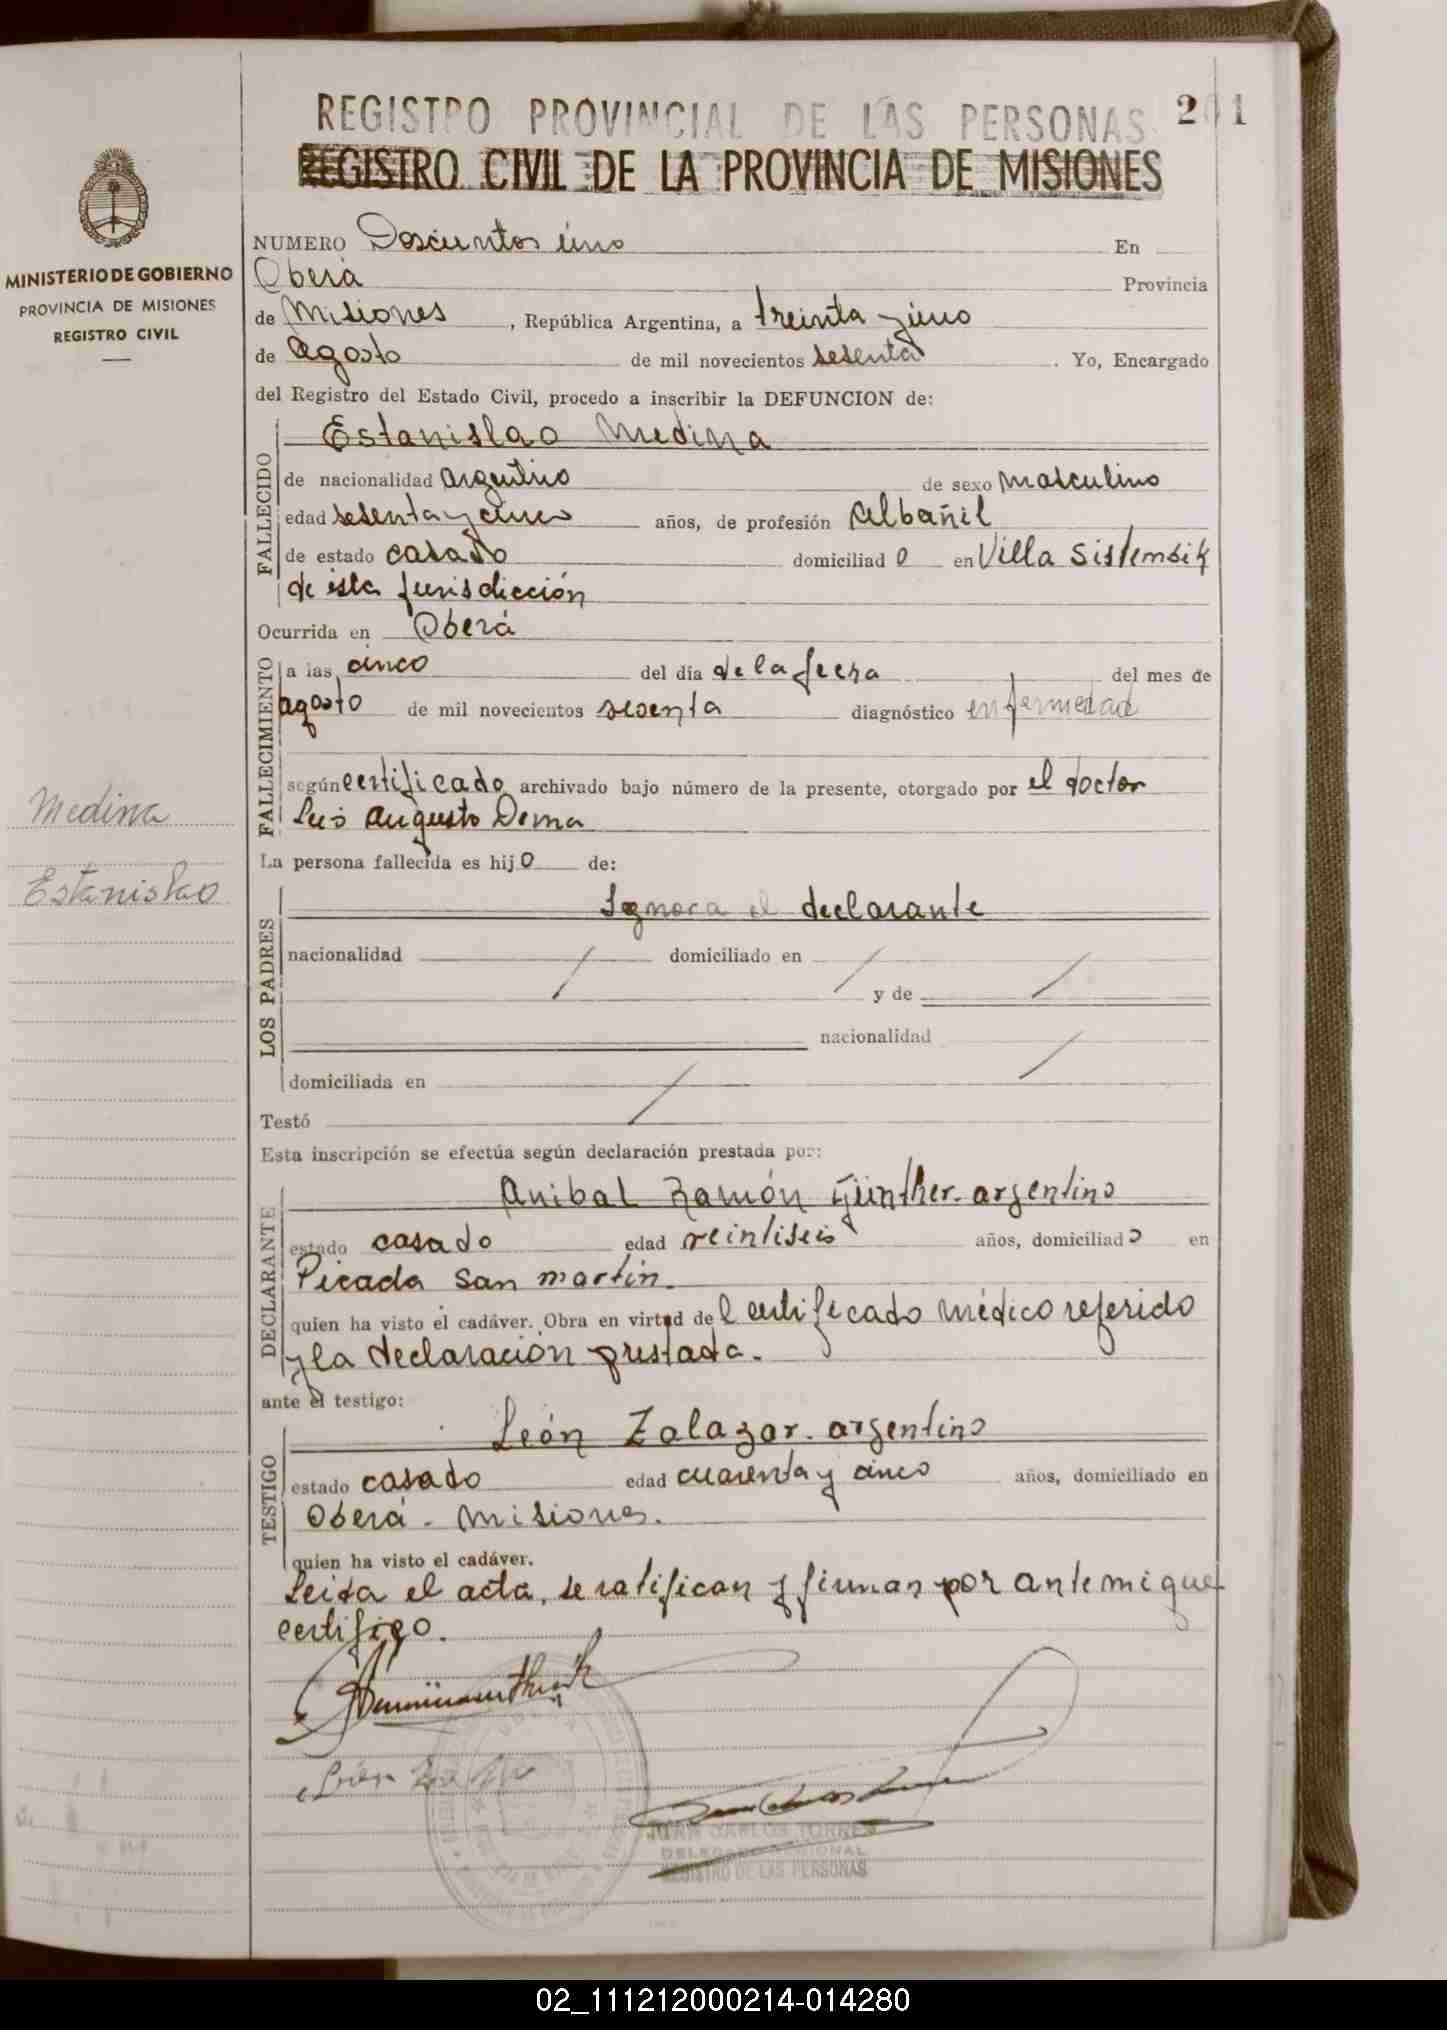 REGISTRO PROVINCIAL DE LAS PERSONAS
201
REGISTRO CIVIL DE LA PROVINCIA DE MISIONES
MINISTERIO DE GOBIERNO
PROVINCIA DE MISIONES
REGISTRO CIVIL
NUMERO Doscientos uno En
Oberá Provincia
de Misiones, República Argentina, a treinta y uno
de Agosto de mil novecientos sesenta. Yo, Encargado
del Registro del Estado Civil, procedo a inscribir la DEFUNCION de:
FALLECIDO
Estanislao Medina
de nacionalidad argentino de sexo masculino
edad sesenta y cinco años, de profesión albañil
de estado casado domiciliado en Villa
de esta Jurisdicción
Ocurrida en Oberá
FALLECIMIENTO
a las cinco del día de la fecha del mes de
agosto de mil novecientos sesenta diagnóstico enfermedad
según certificado archivado bajo número de la presente, otorgado por el doctor
Luis Augusto Dema
Medina
Estanislao
La persona fallecida es hijo de:
LOS PADRES
Ignora el declarante
nacionalidad / domiciliado en /
y de /
nacionalidad /
domiciliada en /
Testó
Esta inscripción se efectúa según declaración prestada por:
DECLARANTE
Anibal Ramón Günther. argentino
estado casado edad veintiseis años, domiciliado en
Picada San martín.
quien ha visto el cadáver. Obra en virtud del certificado médico referido
y la declaración prestada.
ante el testigo:
TESTIGO
León Zalazar. argentino
estado casado edad cuarenta y cinco años, domiciliado en
Oberá - misiones.
quien ha visto el cadáver.
Leida el acta, se ratifican y firman por ante mi que
certifico.
JUAN CARLOS TORRES
DELEGADO REGIONAL
REGISTRO DE LAS PERSONAS
02_111212000214-014280